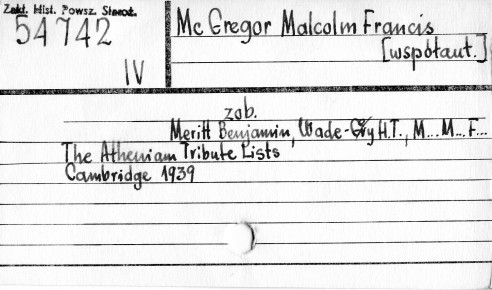 Zakł. Hist. Powsz. Staroż.
54 742
IV
Mc Gregor Malcolm Francis
[współaut.]
zob.
Meritt Benjamin, Wade-Gry H.T., M... M... F...
The Atheniam Tribute Lists
Cambridge 1939